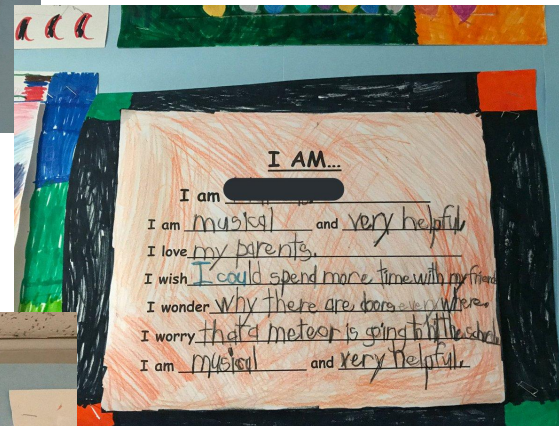 I AM...
I am
I am musical and very helpful
I love my parents.
I wish I could spend more time with my friend
I wonder why there are doors everywhere.
I worry that a meteor is going to hit the school
I am musical and very helpful.